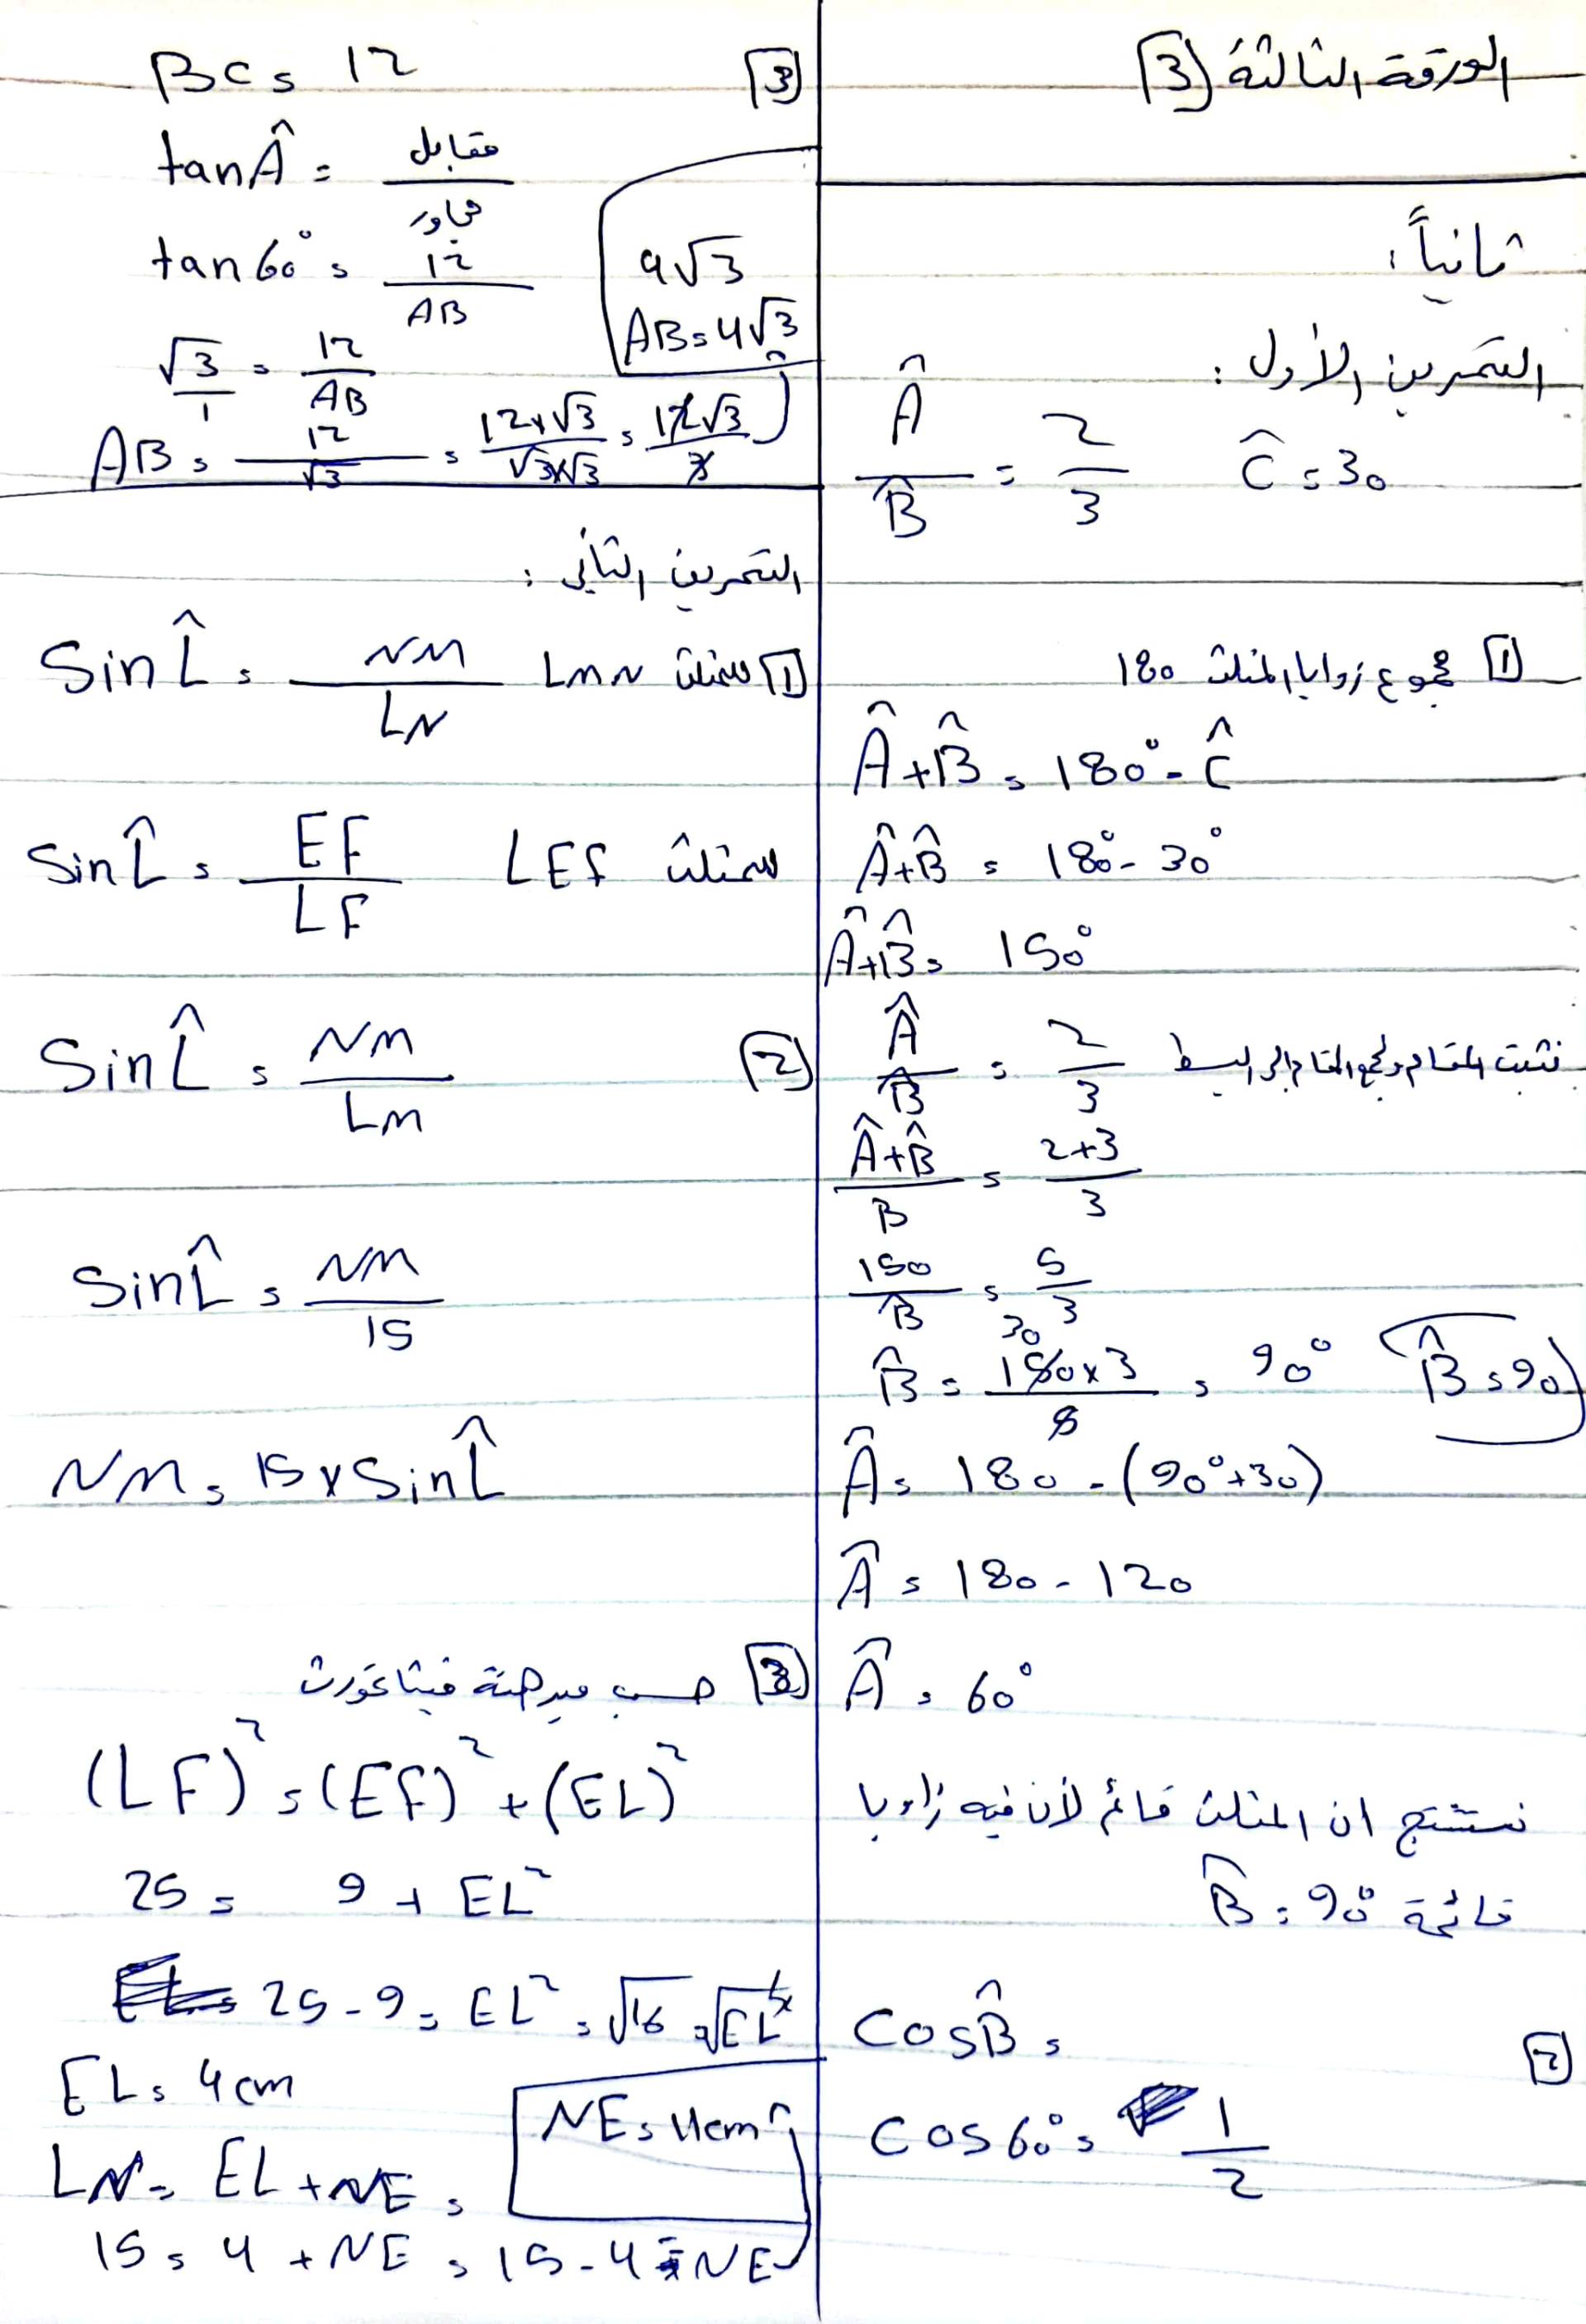 الورقة الثالثة [3]
ثانياً:
التمرين الأول:
Â/B̂ = 2/3   Ĉ = 30
[1] مجموع زوايا المثلث 180
Â+B̂ = 180° - Ĉ
Â+B̂ = 180° - 30°
Â+B̂ = 150°
نثبت المقام ونجمع المقام إلى البسط Â/B̂ = 2/3
Â+B̂/B = 2+3/3
150/B̂ = 5/3
B̂ = 150×3/5 = 90°   B̂ = 90
30
Â = 180 - (90°+30)
Â = 180 - 120
Â = 60°
نستنتج ان المثلث قائم لأن فيه زاويا
قائمة B̂ = 90°
[2] CosB̂ =
Cos60° = 1/2
[3] BC = 12
tanÂ = مقابل/مجاور
tan60° = 12/AB
√3/1 = 12/AB
AB = 12/√3 = 12×√3/√3×√3 = 12√3/3
4√3
AB = 4√3
التمرين الثاني:
[1] المثلث LMN   SinL̂ = NM/LN
المثلث LEF   SinL̂ = EF/LF
[2] SinL̂ = NM/LM
SinL̂ = NM/15
NM = 15×SinL̂
[3] حسب مبرهنة فيثاغورث
(LF)² = (EF)² + (EL)²
25 = 9 + EL²
25 - 9 = EL² = √16 = √EL²
EL = 4cm
NE = 11cm
LN = EL + NE =
15 = 4 + NE = 15 - 4 = NE